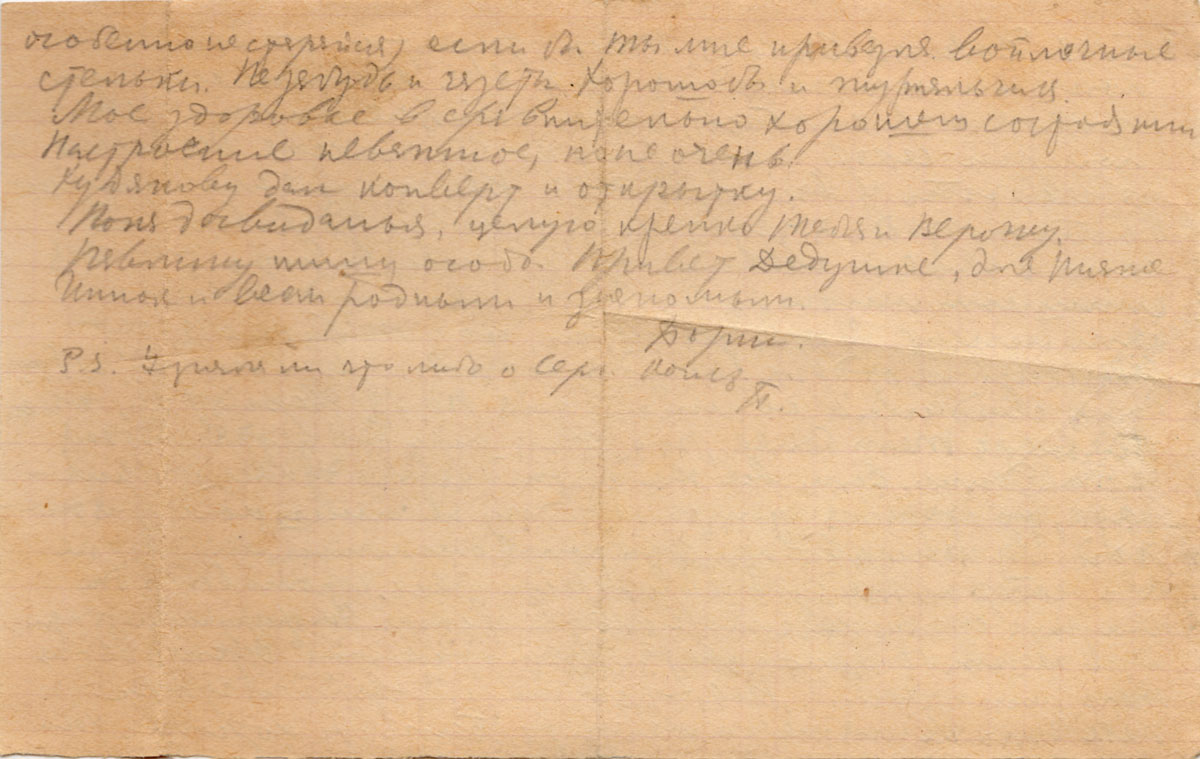 особенно не старайся, если б. ты мне привезла войлочные
стельки. Не забудь и газеты. Хорошо бы и журнальчик.
Мое здоровье в сравнительно хорошем состоянии
Настроение неважное, но не очень.
Худякову дал конверт и открытку.
Пока досвиданья, целую крепко тебя и Верочку.
пишу особо. Привет Дедушке, дяде
и всем родным и знакомым.
Борис.
P.S. Узнала ли что либо о Серг.